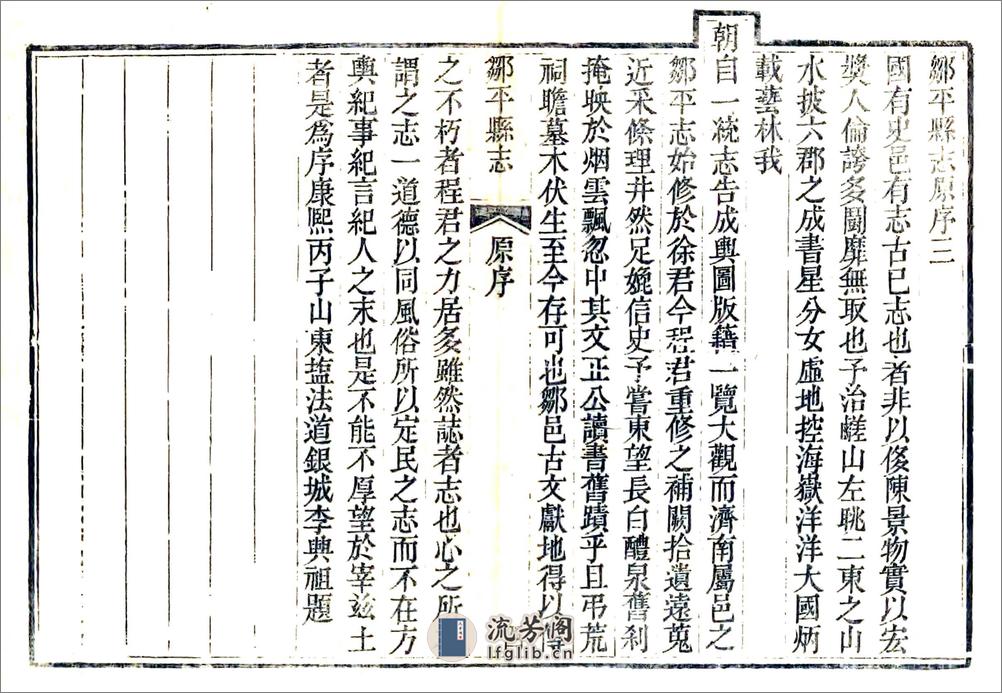 鄒平縣志原序三
國有史邑有志古已志也者非以侈陳景物實以宏
奬人倫誇多鬭靡無取也予治鹺山左眺二東之山
水披六郡之成書星分女虛地控海嶽洋洋大國炳
載藝林我
朝自一統志告成輿圖版籍一覽大觀而濟南屬邑之
鄒平志始修於徐君今程君重修之補闕拾遺遠蒐
近采條理井然足媲信史予嘗東望長白醴泉舊刹
掩映於烟雲飄忽中其文正公讀書舊蹟乎且弔荒
祠瞻墓木伏生至今存可也鄒邑古文獻地得以
鄒平縣志 原序
之不朽者程君之力居多雖然誌者志也心之所
謂之志一道德以同風俗所以定民之志而不在方
輿紀事紀言紀人之末也是不能不厚望於宰兹土
者是為序康熙丙子山東塩法道銀城李興祖題
流芳阁
lfglib.cn